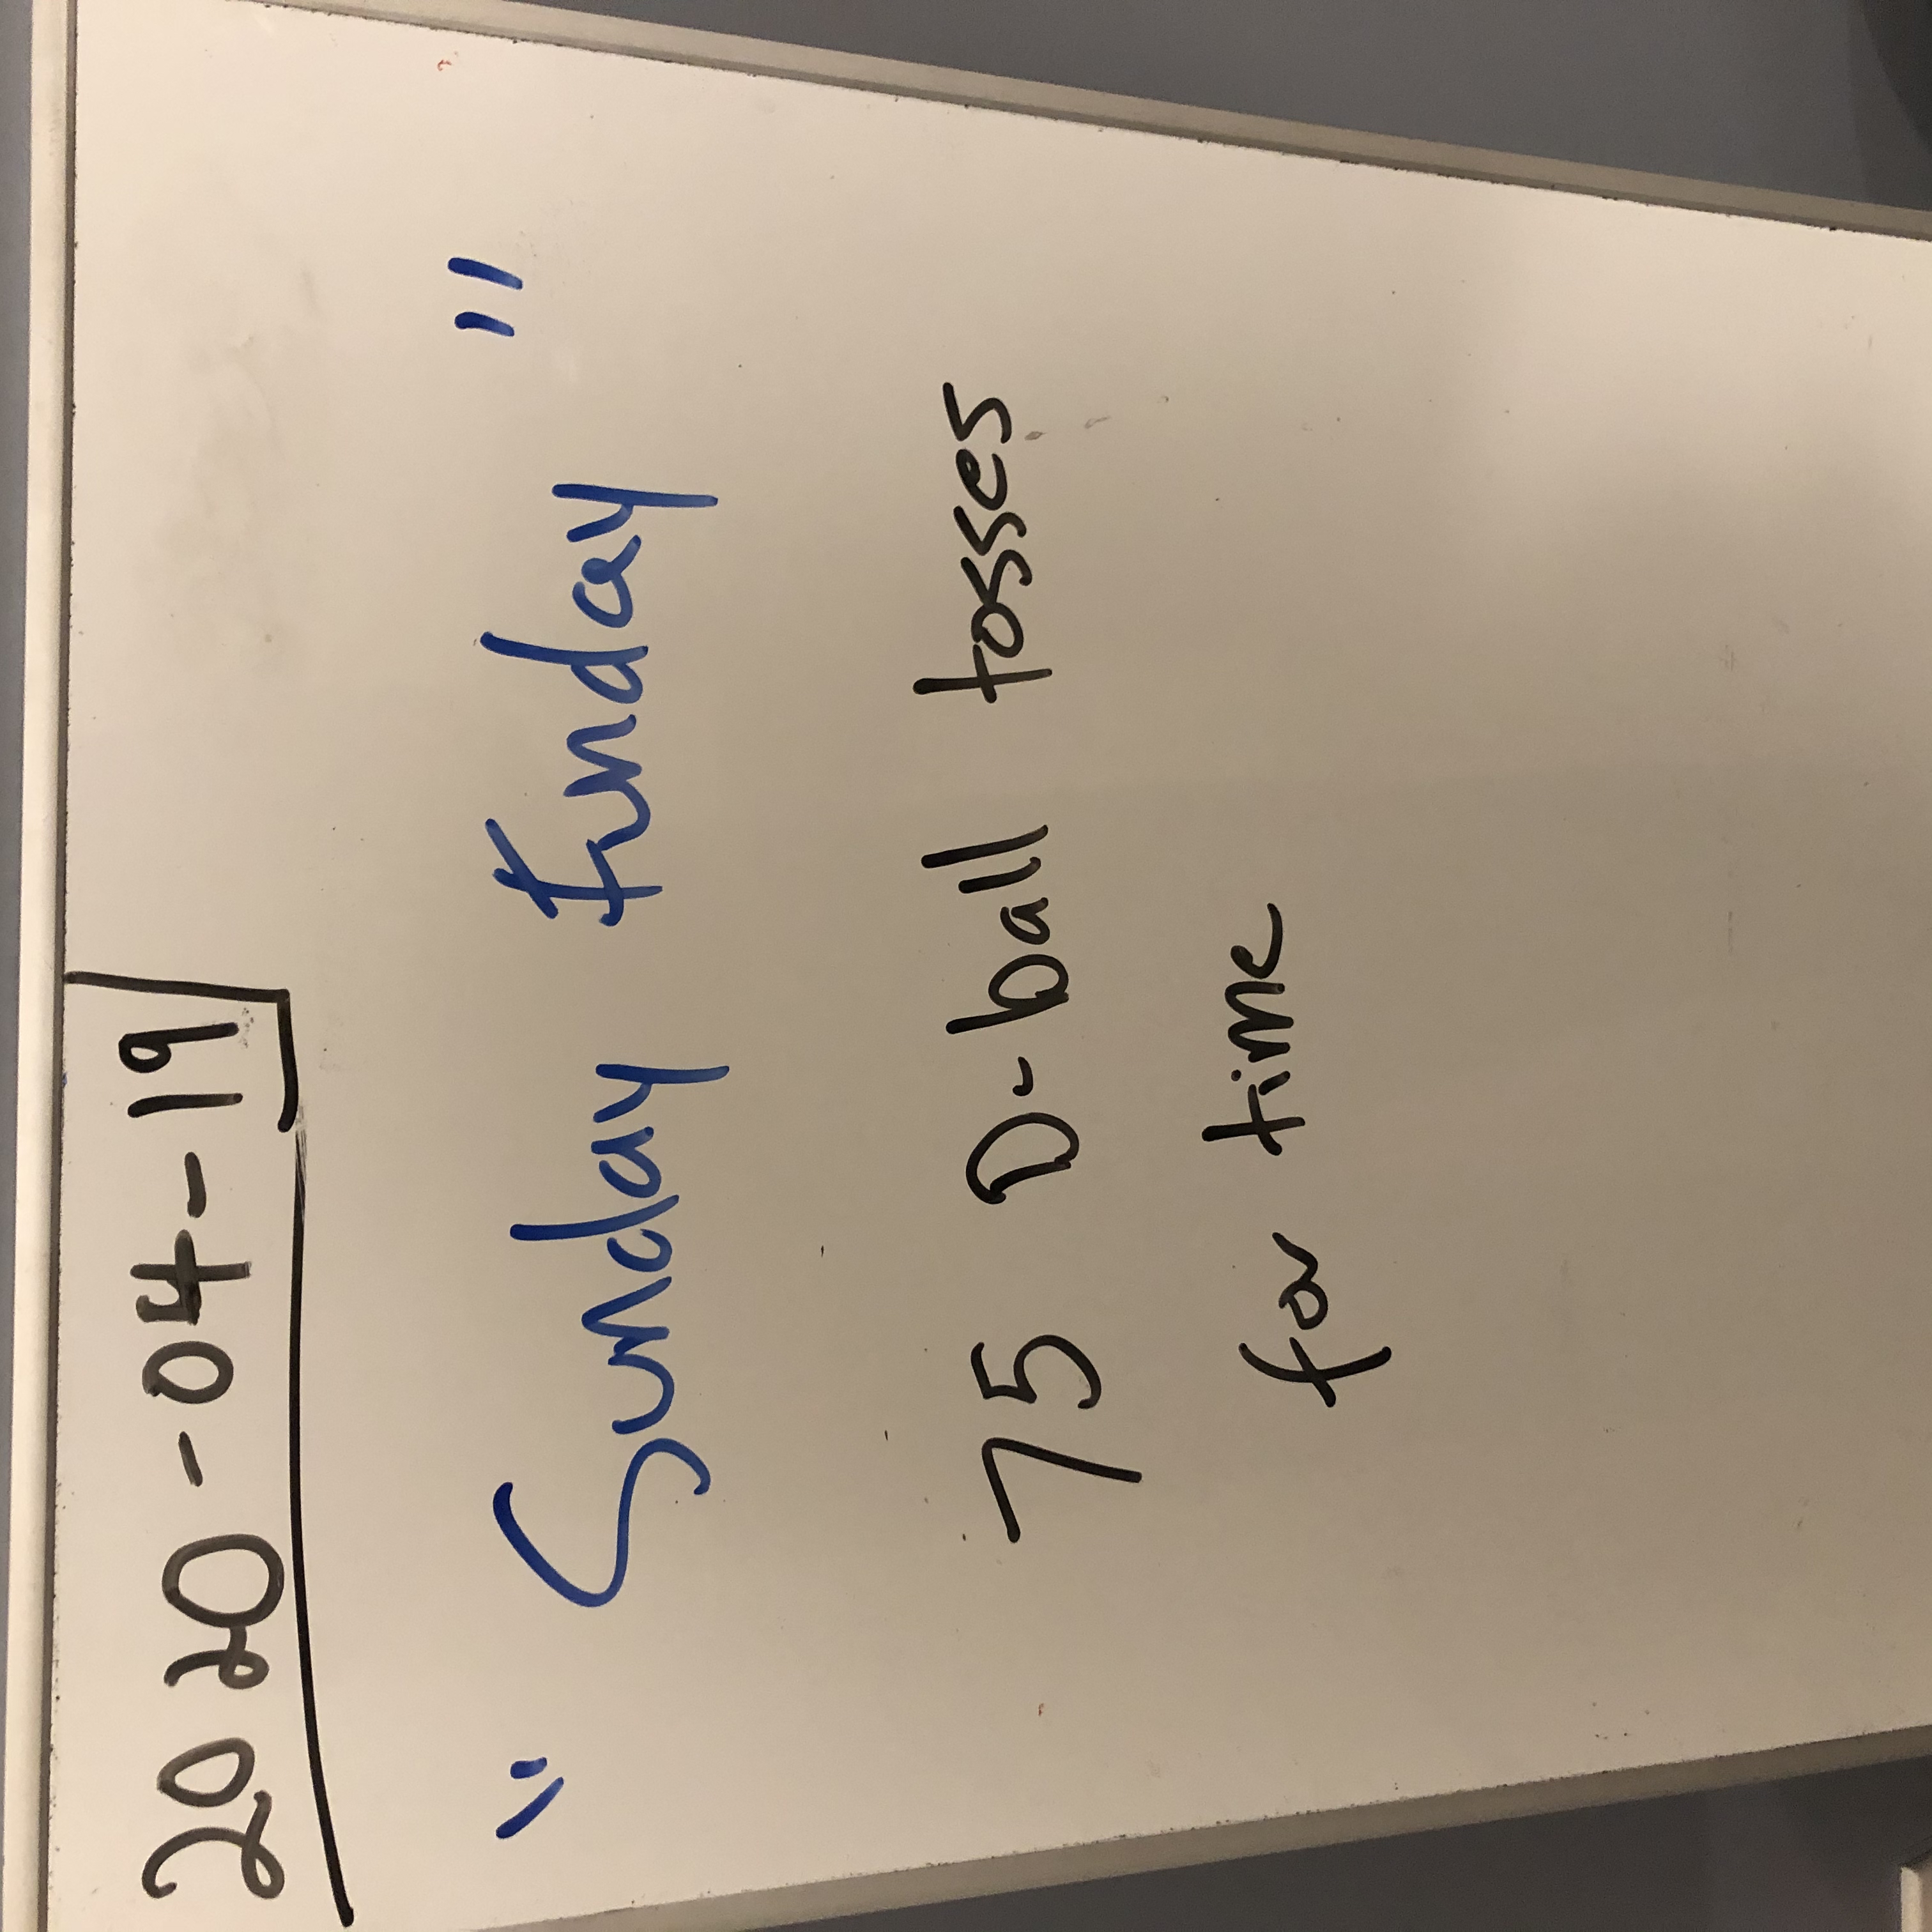 2020-04-19
"Sunday Funday"
75 D-ball tosses
for time